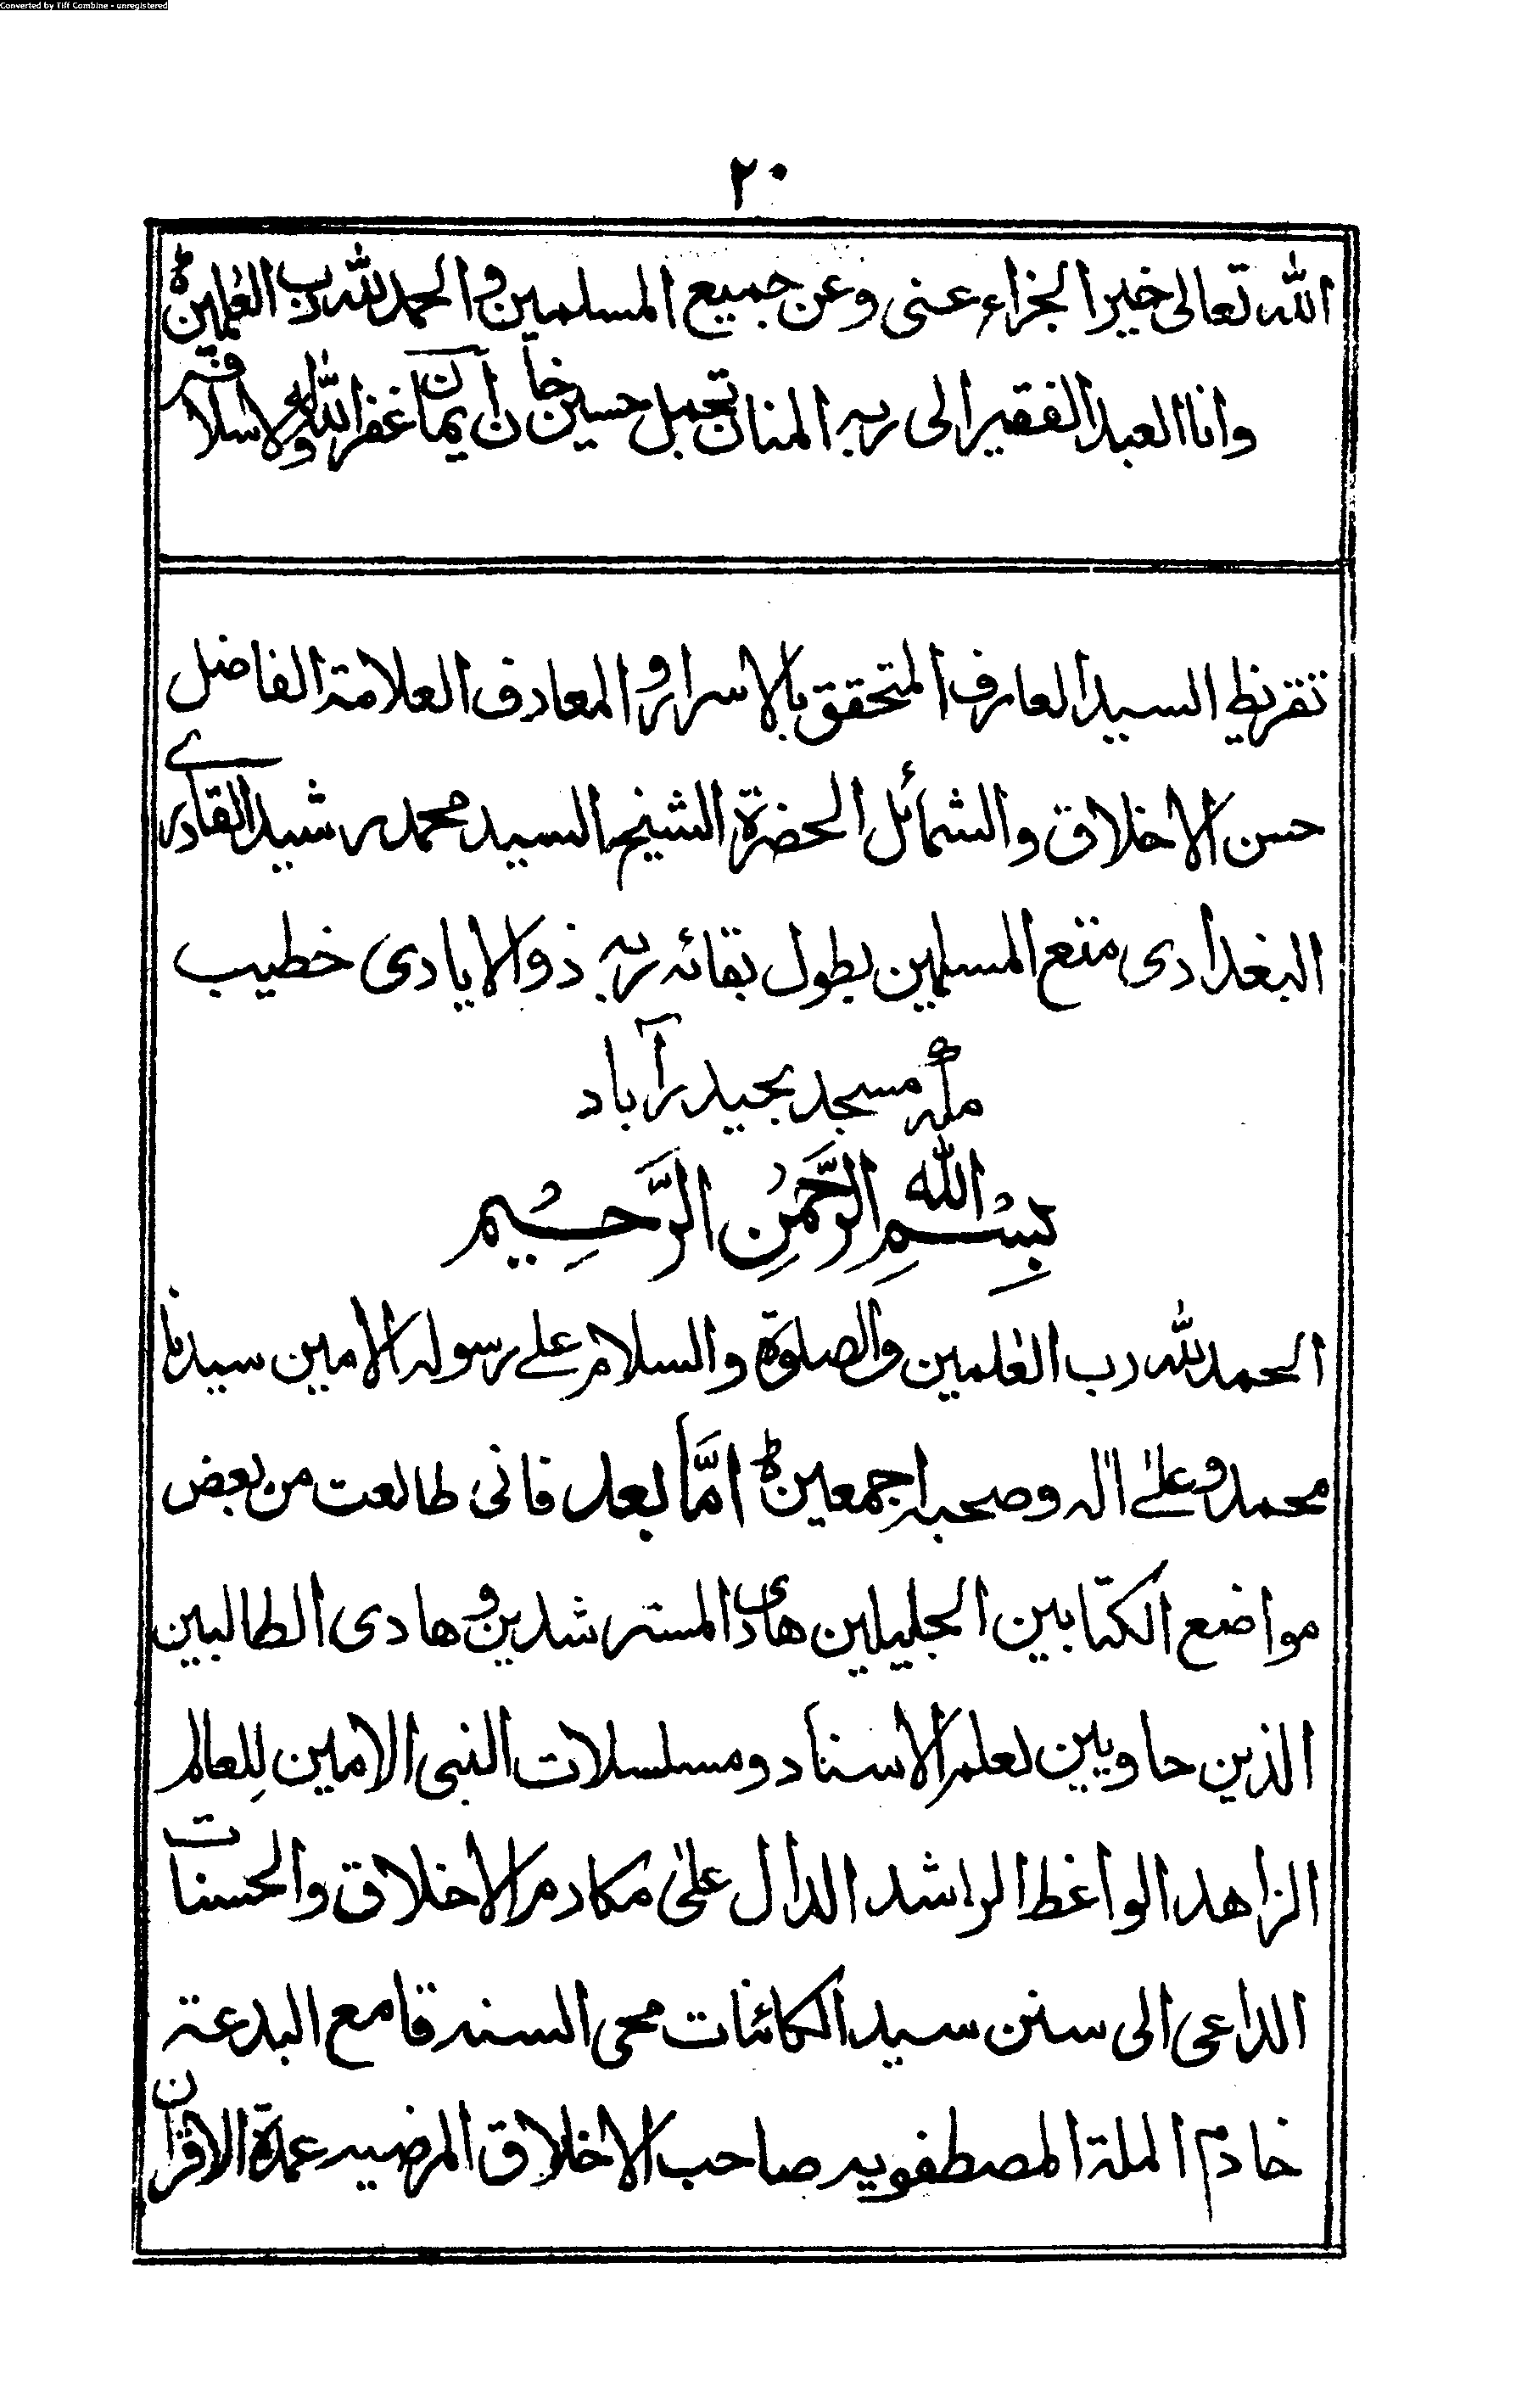 Converted by Tiff Combine - unregistered
٢٠
الله تعالى خير الجزاء عنى وعن جميع المسلمين والحمد لله رب العٰلمين
وانا العبد الفقير الى ربه المنان تجمل حسين خان غفر الله له ولاسلافه
تقريظ السيد العارف المتحقق بالاسرار والمعارف العلامة الفاضل
حسن الاخلاق والشمائل الحضرة الشيخ السيد محمد رشيد القادرى
البغدادى متع المسلمين بطول بقائه ربه ذو الايادى خطيب
مكه مسجد بحيدرآباد
بِسْمِ اللهِ الرَّحْمٰنِ الرَّحِيْمِ
الحمد لله رب العٰلمين والصلوة والسلام على رسوله الامين سيدنا
محمد وعلىٰ اٰله وصحبه اجمعين امَّا بعد فانى طالعت من بعض
مواضع الكتابين الجليلين هادى المسترشدين وهادى الطالبين
الذين حاويين لعلم الاسناد ومسلسلات النبى الامين لِلعالم
الزاهد الواغط الراشد الدال علىٰ مكارم الاخلاق والحسنات
الداعى الى سنن سيد الكائنات محى السنه قامع البدعة
خادم الملة المصطفويه صاحب الاخلاق المرضيه عمدة الاقران